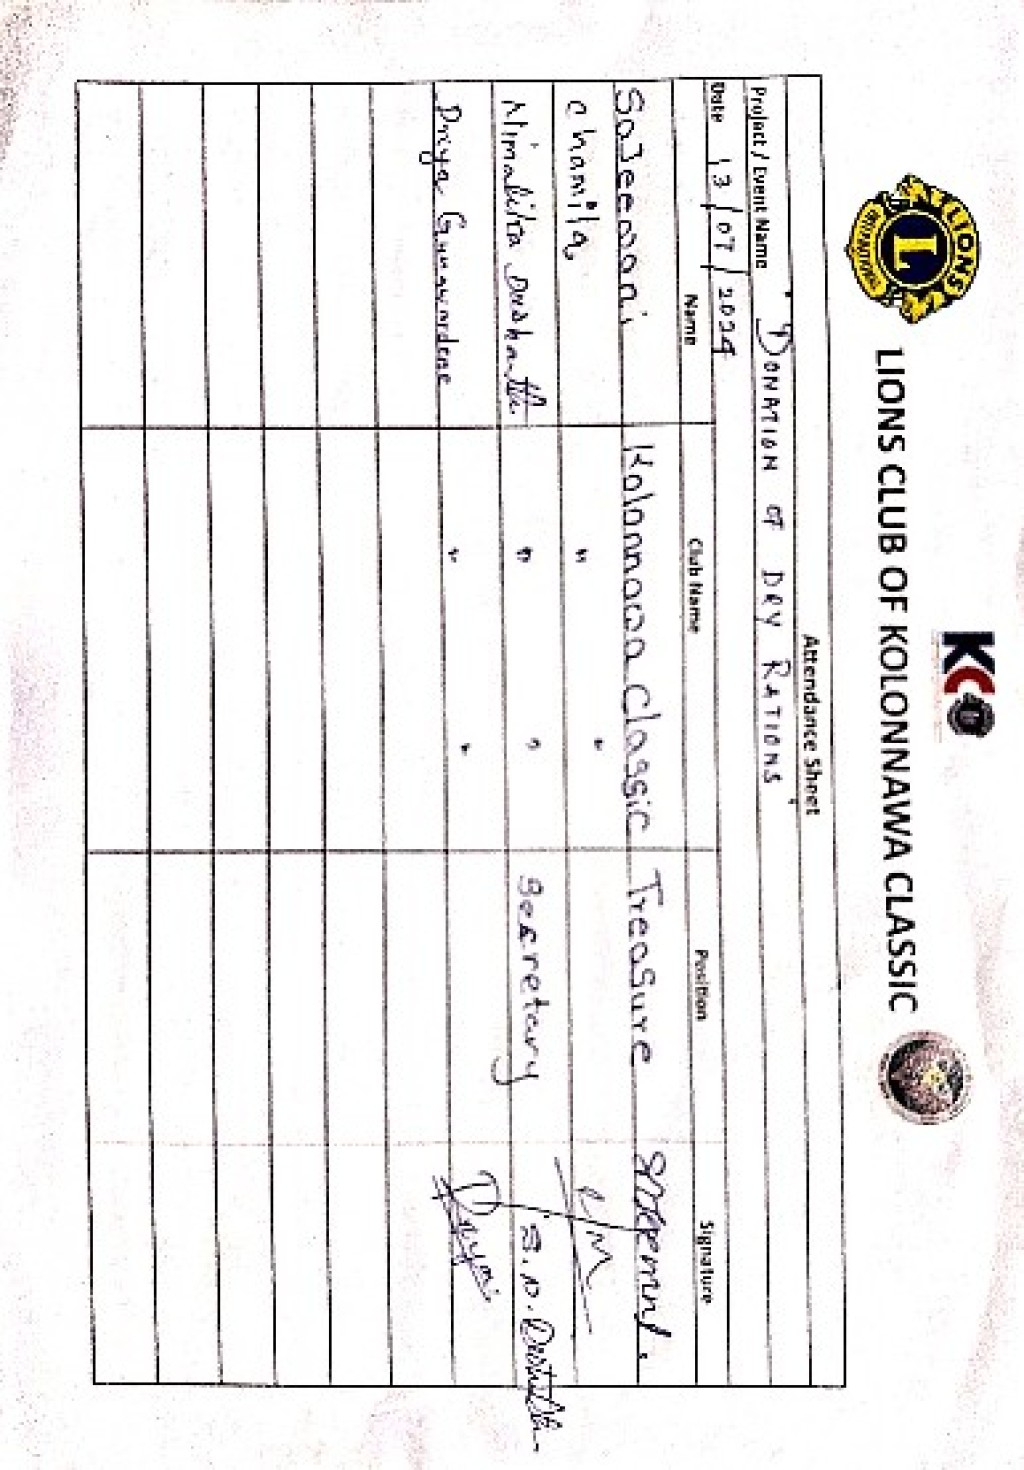 LIONS
L
INTERNATIONAL
KC
LIONS CLUB OF KOLONNAWA CLASSIC
Attendance Sheet
Project / Event Name "DONATION OF DRY RATIONS"
Date 13/07/2024
Name Club Name Position Signature
Sajeewani Kolonnawa Classic Treasure
Chamila " "
Nimalika Dushanthi " " Secretary S.N. Dushanthi
Priya Gunawardene " " Priya